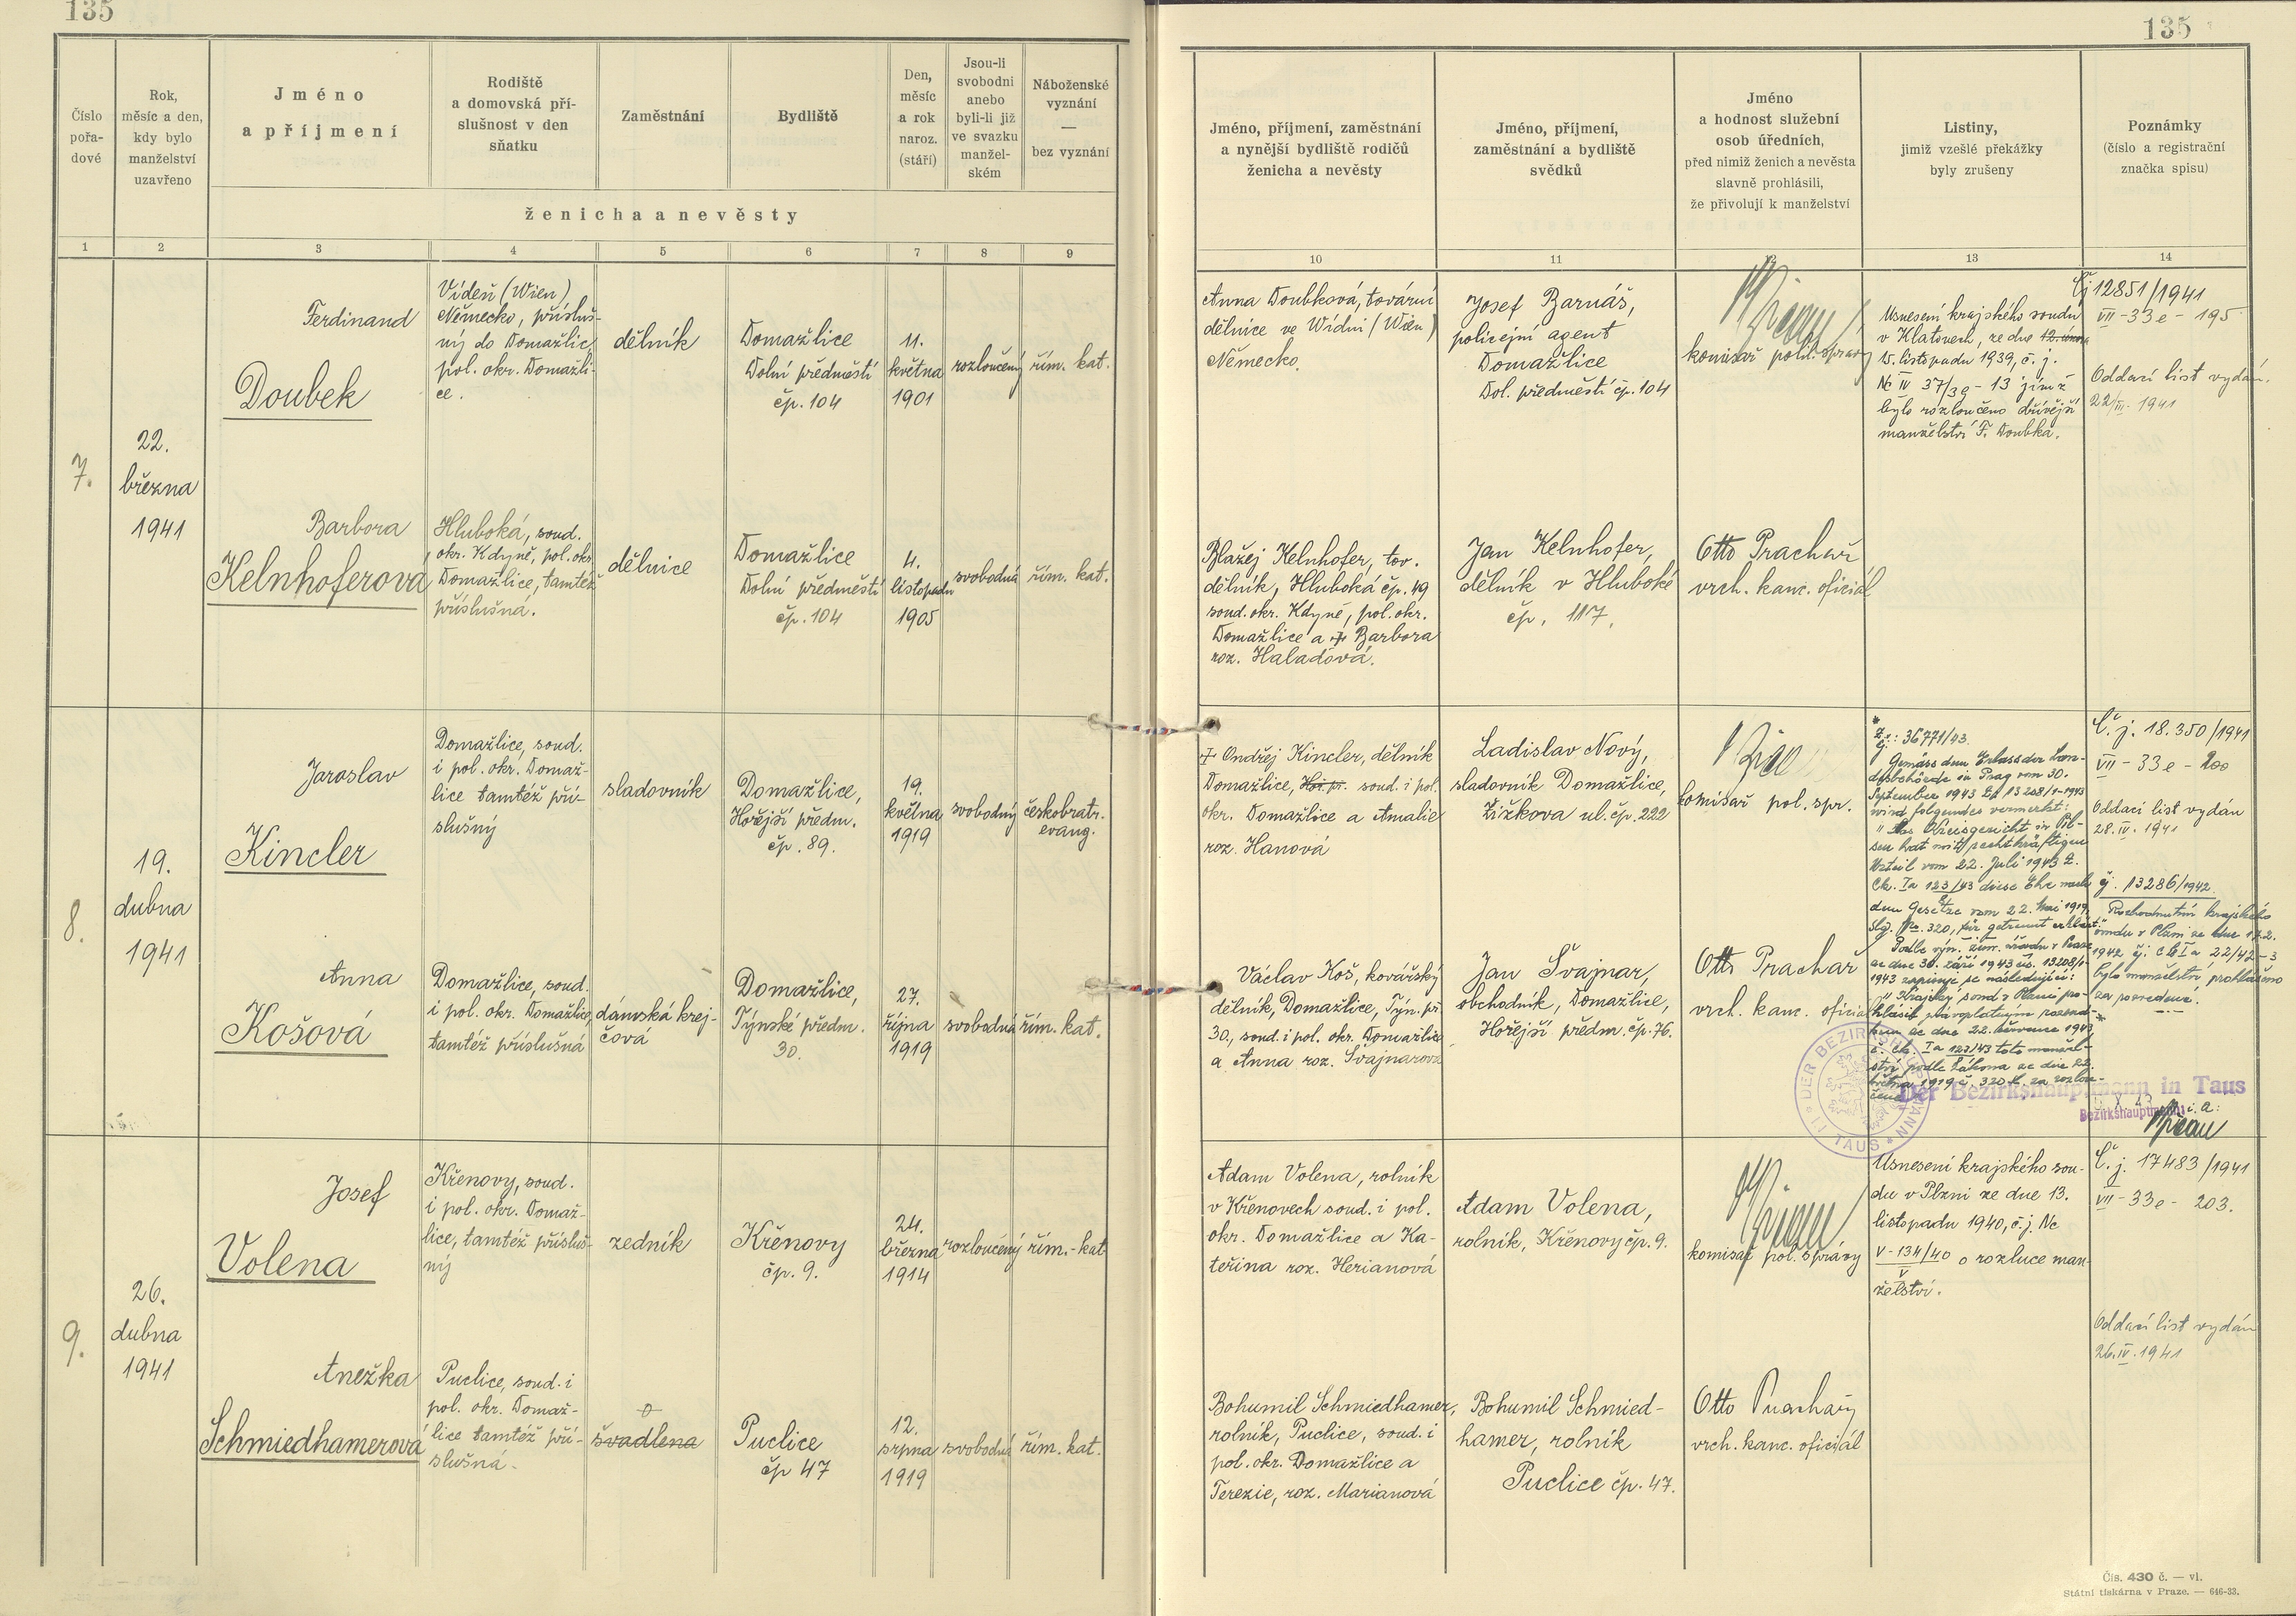 135
135
Číslo
pořa-
dové
Rok,
měsíc a den,
kdy bylo
manželství
uzavřeno
Jméno
a příjmení
Rodiště
a domovská pří-
slušnost v den
sňatku
Zaměstnání
Bydliště
Den,
měsíc
a rok
naroz.
(stáří)
Jsou-li
svobodni
anebo
byli-li již
ve svazku
manžel-
ském
Náboženské
vyznání
—
bez vyznání
ženicha a nevěsty
Jméno, příjmení, zaměstnání
a nynější bydliště rodičů
ženicha a nevěsty
Jméno, příjmení,
zaměstnání a bydliště
svědků
Jméno
a hodnost služební
osob úředních,
před nimiž ženich a nevěsta
slavně prohlásili,
že přivolují k manželství
Listiny,
jimiž vzešlé překážky
byly zrušeny
Poznámky
(číslo a registrační
značka spisu)
1 2 3 4 5 6 7 8 9
10 11 12 13 14
7.
22.
března
1941
Ferdinand
Doubek
Vídeň (Wien)
Německo, přísluš-
ný do Domažlic,
pol. okr. Domažli-
ce.
dělník
Domažlice
Dolní předměstí
čp. 104
11.
května
1901
rozloučený
řím. kat.
Anna Doubková, tovární
dělnice ve Vídni (Wien)
Německo.
Josef Barnáš,
policejní agent
Domažlice
Dol. předměstí čp. 104
komisař polit. správy
Usnesení krajského soudu
v Klatovech, ze dne 12. února
15. listopadu 1939, č. j.
Nc IV 37/39 - 13 jímž
bylo rozloučeno dřívější
manželství F. Doubka.
Čj 12851/1941
VII - 33e - 195
Oddací list vydán.
22/III. 1941
Barbora
Kelnhoferová
Hluboká, soud.
okr. Kdyně, pol. okr.
Domažlice, tamtéž
příslušná.
dělnice
Domažlice
Dolní předměstí
čp. 104
4.
listopadu
1905
svobodná
řím. kat.
Blažej Kelnhofer, tov.
dělník, Hluboká čp. 49
soud. okr. Kdyně, pol. okr.
Domažlice a † Barbora
roz. Haladová.
Jan Kelnhofer,
dělník v Hluboké
čp. 117.
Otto Prachař
vrch. kanc. oficiál
8.
19.
dubna
1941
Jaroslav
Kincler
Domažlice, soud.
i pol. okr. Domaž-
lice tamtéž pří-
slušný
sladovník
Domažlice,
Hořejší předm.
čp. 89.
19.
května
1919
svobodný
českobratr.
evang.
† Ondřej Kincler, dělník
Domažlice, Hoř. př. soud. i pol.
okr. Domažlice a Amalie
roz. Hanová
Ladislav Nový,
sladovník Domažlice,
Žižkova ul. čp. 222
komisař pol. spr.
Čj.: 36771/43.
Gemäss dem Erlass der Lan-
desbehörde in Prag vom 30.
September 1943 Zl. 13208/1-1943
wird folgendes vermerkt:
"Das Kreisgericht in Pil-
sen hat mit rechtskräftigem
Urteil vom 22. Juli 1943 Z.
Ck. Ia 123/43 diese Ehe nach
dem Gesetze vom 22. Mai 1919,
Slg. Nr. 320, für getrennt erklärt."
Podle výn. zem. úřadu v Praze
ze dne 30. září 1943 čís. 13208/1-
1943 zapisuje se následující:
"Krajský soud v Plzni pro-
hlásil pravoplatným rozsud-
kem ze dne 22. července 1943,
č. Ck. Ia 123/43 toto manžel-
ství podle zákona ze dne 22.
května 1919 č. 320 Sb. za rozlou-
čené."
Č. j. 18.350/1941
VII - 33e - 200
Oddací list vydán
28. IV. 1941
čj. 13286/1942.
Rozhodnutím krajského
soudu v Plzni ze dne 17.2.
1942 čj: Ck I a 22/42-3
bylo manželství prohlášeno
za rozvedené.
Anna
Košová
Domažlice, soud.
i pol. okr. Domažlice,
tamtéž příslušná
dámská krej-
čová
Domažlice,
Týnské předm.
30.
27.
října
1919
svobodná
řím. kat.
Václav Koš, kovářský
dělník, Domažlice, Týn. př.
30., soud. i pol. okr. Domažlice
a Anna roz. Švajnarová
Jan Švajnar,
obchodník, Domažlice,
Hořejší předm. čp. 76.
Otto Prachař
vrch. kanc. oficiál
DER BEZIRKSHAUPTMANN
IN TAUS
Der Bezirkshauptmann in Taus
Bezirkshauptmann
i. a.:
9.
26.
dubna
1941
Josef
Volena
Křenovy, soud.
i pol. okr. Domaž-
lice, tamtéž přísluš-
ný
zedník
Křenovy
čp. 9.
24.
března
1914
rozloučený
řím.-kat
Adam Volena, rolník
v Křenovech soud. i pol.
okr. Domažlice a Ka-
teřina roz. Herianová
Adam Volena,
rolník, Křenovy čp. 9.
komisař pol. správy
Usnesení krajského sou-
du v Plzni ze dne 13.
listopadu 1940, č. j. Nc
V - 134/40 o rozluce man-
V
želství.
Č. j. 17483/1941
VII - 33e - 203.
Oddací list vydán
26. IV. 1941
Anežka
Schmiedhamerová
Puclice, soud. i
pol. okr. Domaž-
lice tamtéž pří-
slušná.
švadlena
Puclice
čp 47
12.
srpna
1919
svobodná
řím. kat.
Bohumil Schmiedhamer,
rolník, Puclice, soud. i
pol. okr. Domažlice a
Terezie, roz. Marianová
Bohumil Schmied-
hamer, rolník
Puclice čp. 47.
Otto Prachař
vrch. kanc. oficiál
Čís. 430 č. — vl.
Státní tiskárna v Praze. — 646-33.